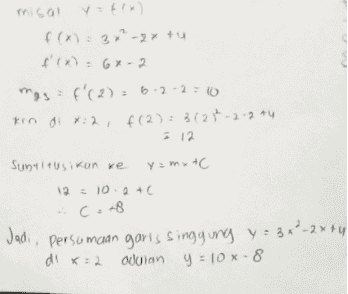 misal y = f(x)
f(x) = 3x² - 2x + 4
f'(x) = 6x - 2
mgs = f'(2) = 6·2 - 2 = 10
krn di x=2, f(2) = 3(2)² - 2·2 + 4
= 12
Substitusikan ke y = mx + C
12 = 10·2 + C
∴ C = -8
Jadi, persamaan garis singgung y = 3x² - 2x + 4
di x = 2 adalah y = 10x - 8